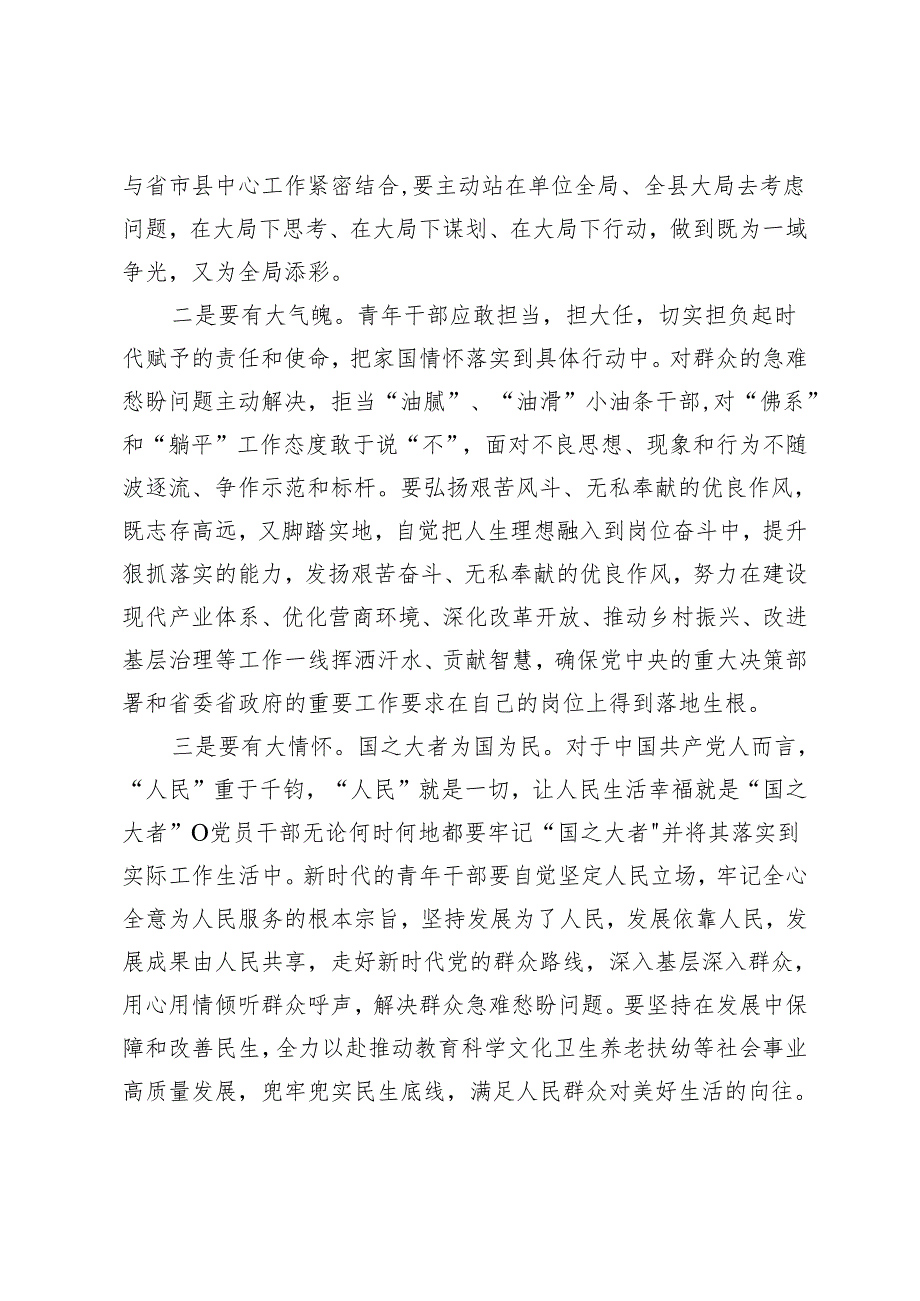 与省市县中心工作紧密结合,要主动站在单位全局、全县大局去考虑
问题，在大局下思考、在大局下谋划、在大局下行动，做到既为一域
争光，又为全局添彩。
二是要有大气魄。青年干部应敢担当，担大任，切实担负起时
代赋予的责任和使命，把家国情怀落实到具体行动中。对群众的急难
愁盼问题主动解决，拒当“油腻”、“油滑”小油条干部,对“佛系”
和“躺平”工作态度敢于说“不”，面对不良思想、现象和行为不随
波逐流、争作示范和标杆。要弘扬艰苦风斗、无私奉献的优良作风，
既志存高远，又脚踏实地，自觉把人生理想融入到岗位奋斗中，提升
狠抓落实的能力，发扬艰苦奋斗、无私奉献的优良作风，努力在建设
现代产业体系、优化营商环境、深化改革开放、推动乡村振兴、改进
基层治理等工作一线挥洒汗水、贡献智慧，确保党中央的重大决策部
署和省委省政府的重要工作要求在自己的岗位上得到落地生根。
三是要有大情怀。国之大者为国为民。对于中国共产党人而言，
“人民”重于千钧，“人民”就是一切，让人民生活幸福就是“国之
大者”O党员干部无论何时何地都要牢记“国之大者"并将其落实到
实际工作生活中。新时代的青年干部要自觉坚定人民立场，牢记全心
全意为人民服务的根本宗旨，坚持发展为了人民，发展依靠人民，发
展成果由人民共享，走好新时代党的群众路线，深入基层深入群众，
用心用情倾听群众呼声，解决群众急难愁盼问题。要坚持在发展中保
障和改善民生,全力以赴推动教育科学文化卫生养老扶幼等社会事业
高质量发展，兜牢兜实民生底线，满足人民群众对美好生活的向往。